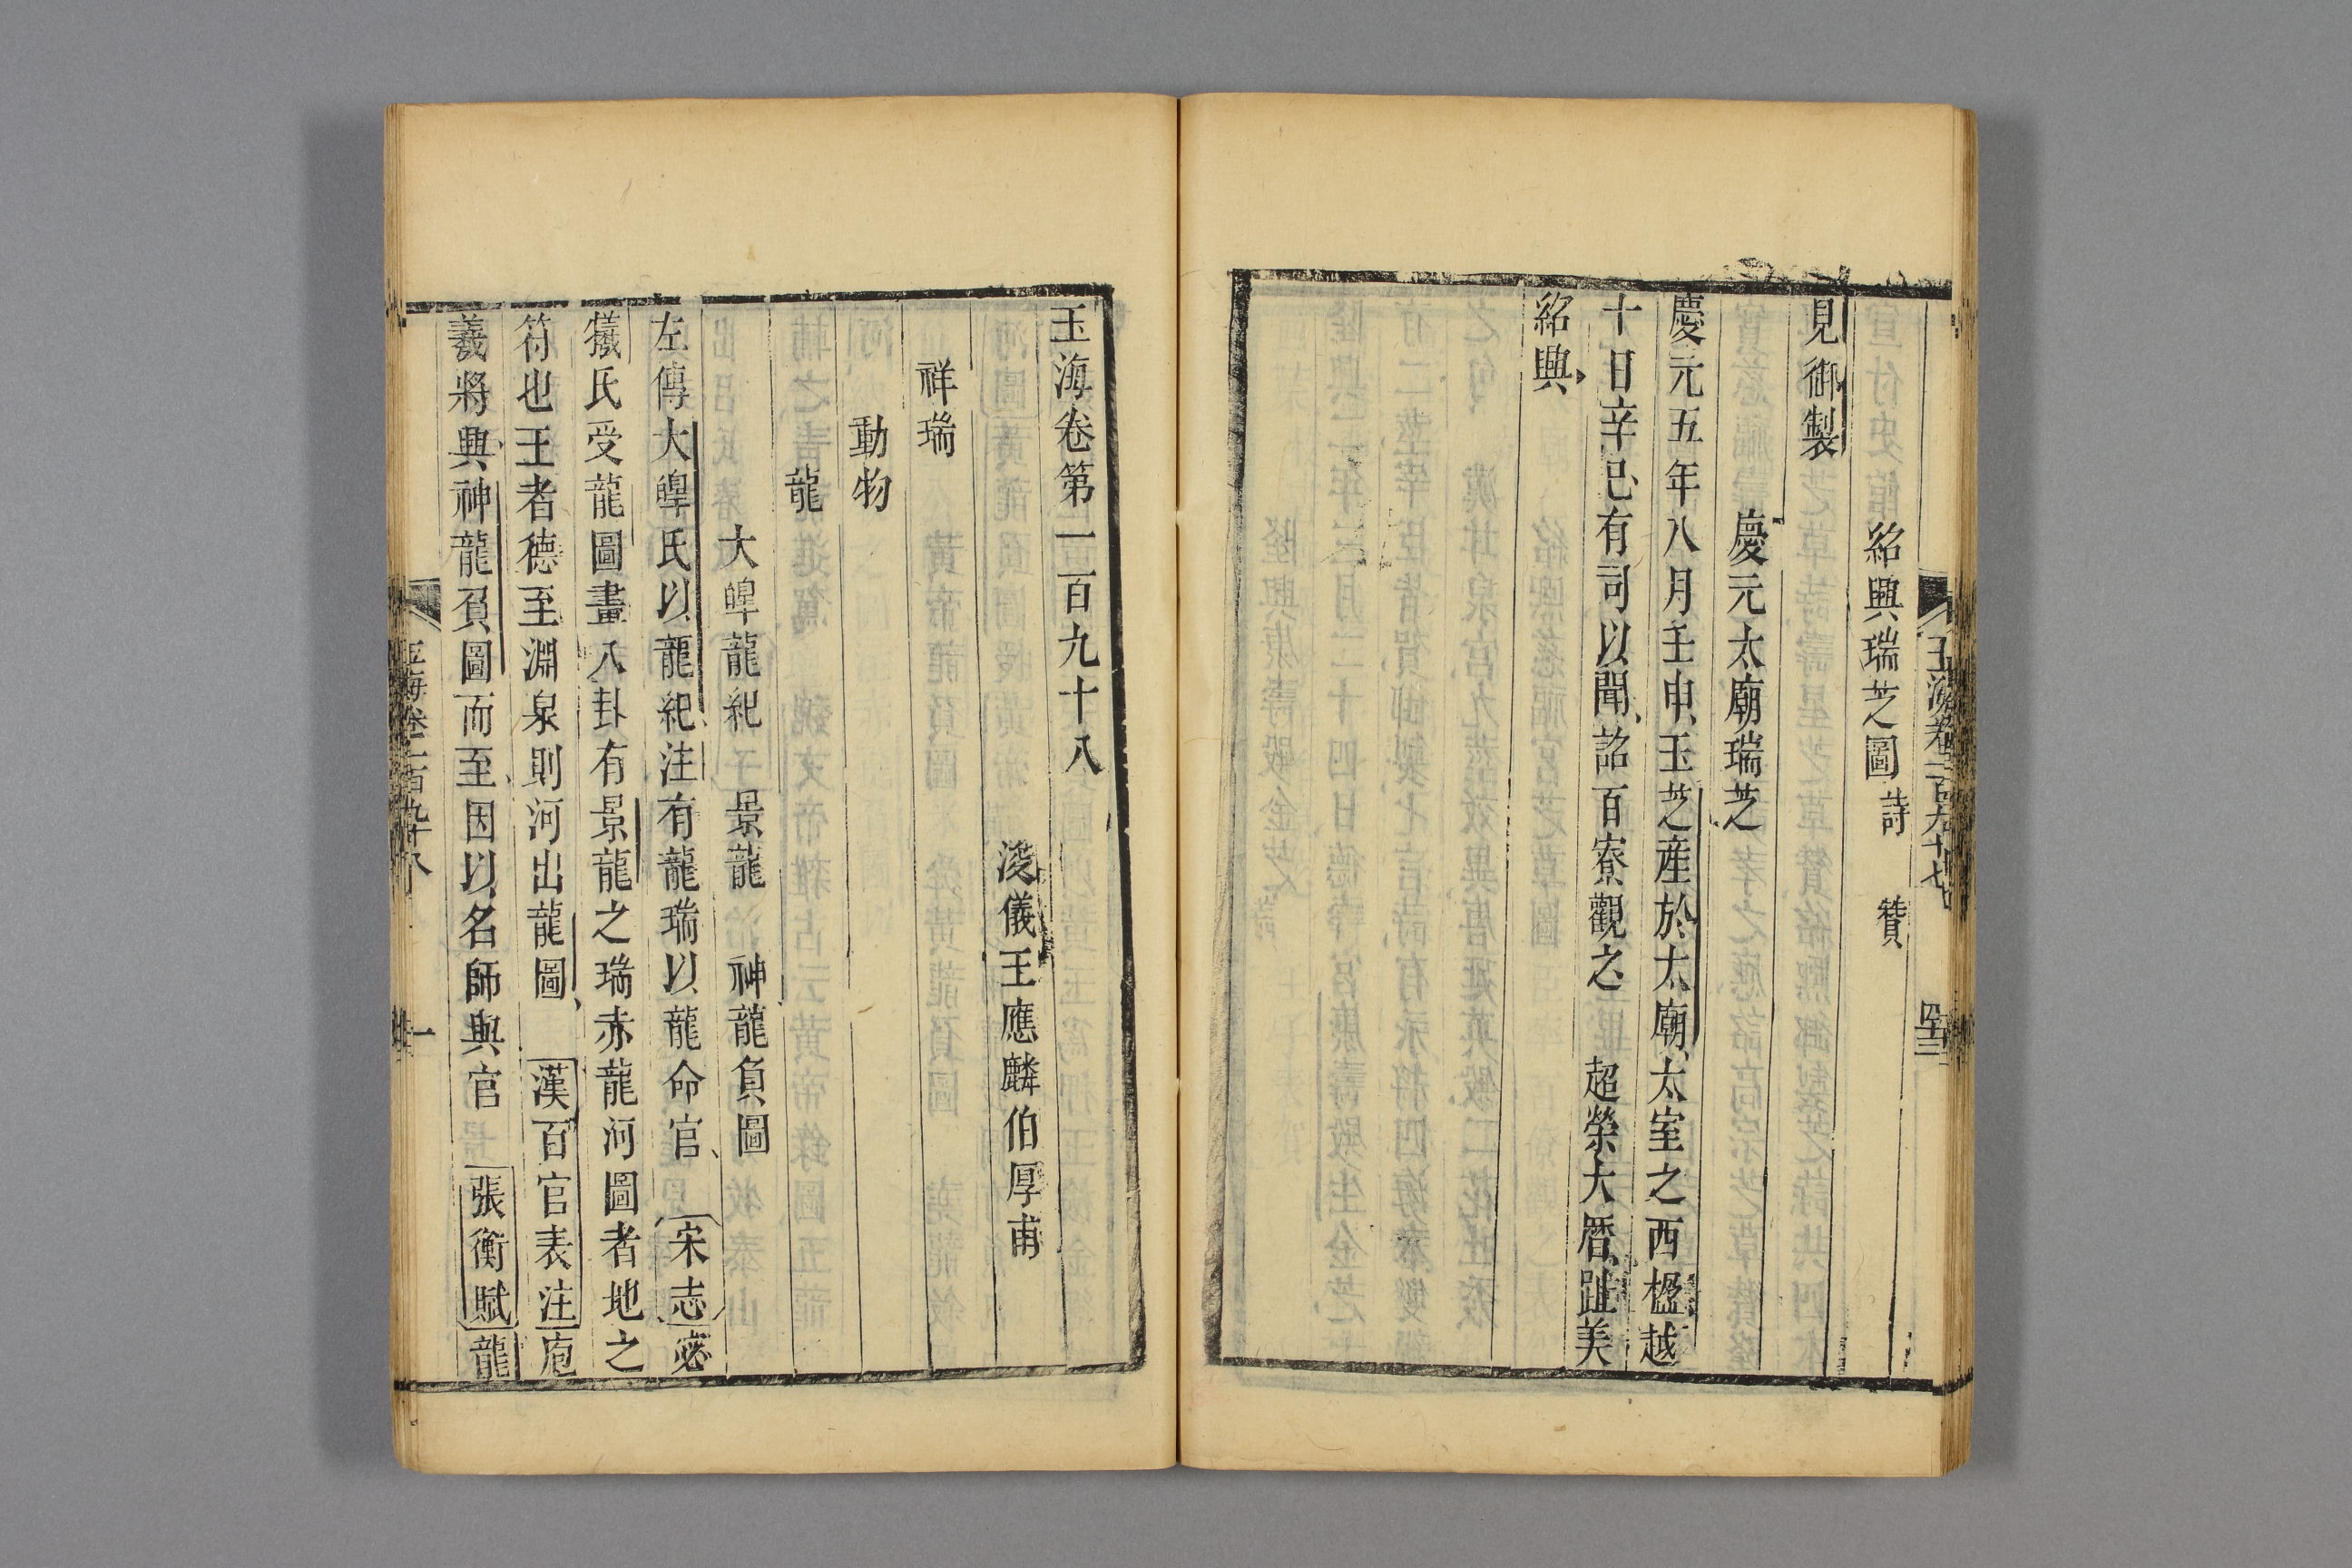 紹興瑞芝圖 詩 贊
見御製
慶元太廟瑞芝
慶元五年八月壬申玉芝産於太廟太室之西楹越
十日辛巳有司以聞詔百寮觀之 超榮大曆跐美
紹興
玉海卷一百九十七
玉海卷第一百九十八
浚儀王應麟伯厚甫
祥瑞
動物
龍
大皥龍紀 景龍 神龍負圖
左傳大皥氏以龍紀注有龍瑞以龍命官 宋志宓
犧氏受龍圖畫八卦有景龍之瑞赤龍河圖者地之
符也王者德至淵泉則河出龍圖 漢百官表注庖
羲將興神龍負圖而至因以名師與官 張衡賦龍
玉海卷一百九十八
一